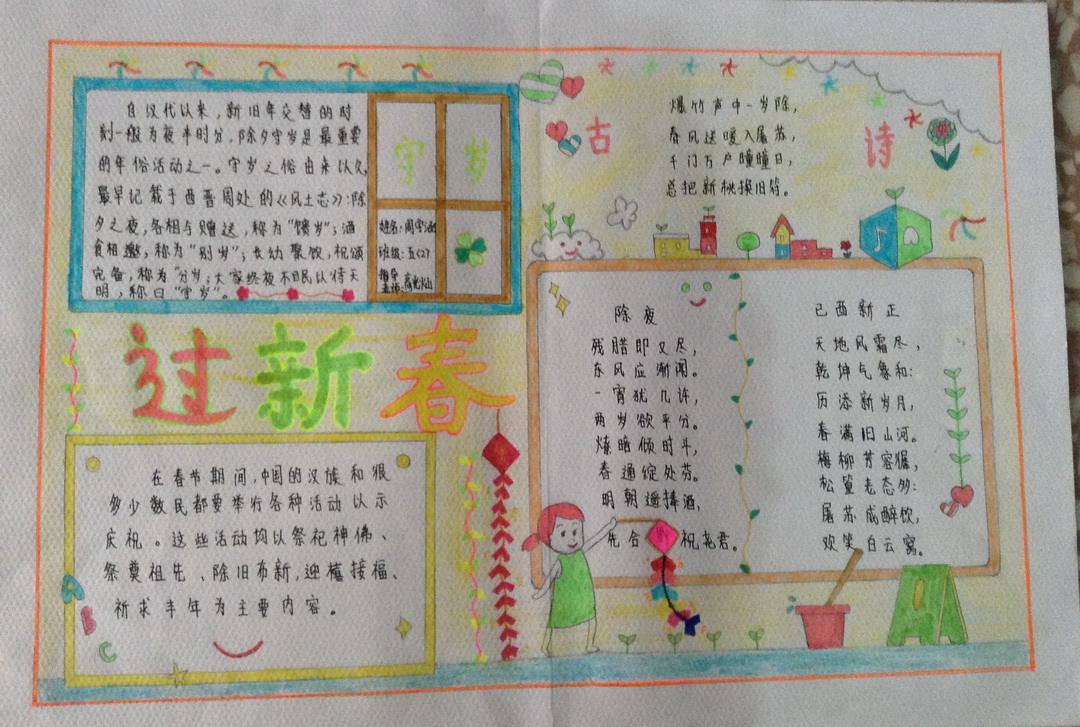 自汉代以来,新旧年交替的时
刻一般为夜半时分,除夕守岁是最重要
的年俗活动之一。守岁之俗由来以久,
最早记载于西晋周处的《风土志》:除
夕之夜,各相与赠送,称为"馈岁";酒
食相邀,称为"别岁";长幼聚饮,祝颂
完备,称为"分岁";大家终夜不眠以待天
明,称曰"守岁"。
守岁
姓名:周宇涵
班级:五(2)
指导
老师:
过新春
在春节期间,中国的汉族和很
多少数民都要举行各种活动以示
庆祝。这些活动均以祭祀神佛、
祭奠祖先、除旧布新,迎禧接福、
祈求丰年为主要内容。
A
B
C
古诗
爆竹声中一岁除,
春风送暖入屠苏,
千门万户曈曈日,
总把新桃换旧符。
除夜
残腊即又尽,
东风应渐闻。
一宵犹几许,
两岁欲平分。
燎暗倾时斗,
春通绽处芬。
明朝遥捧酒,
先合祝尧君。
己酉新正
天地风霜尽,
乾坤气象和:
历添新岁月,
春满旧山河。
梅柳芳容徲,
松篁老态多:
屠苏成醉饮,
欢笑白云窝。